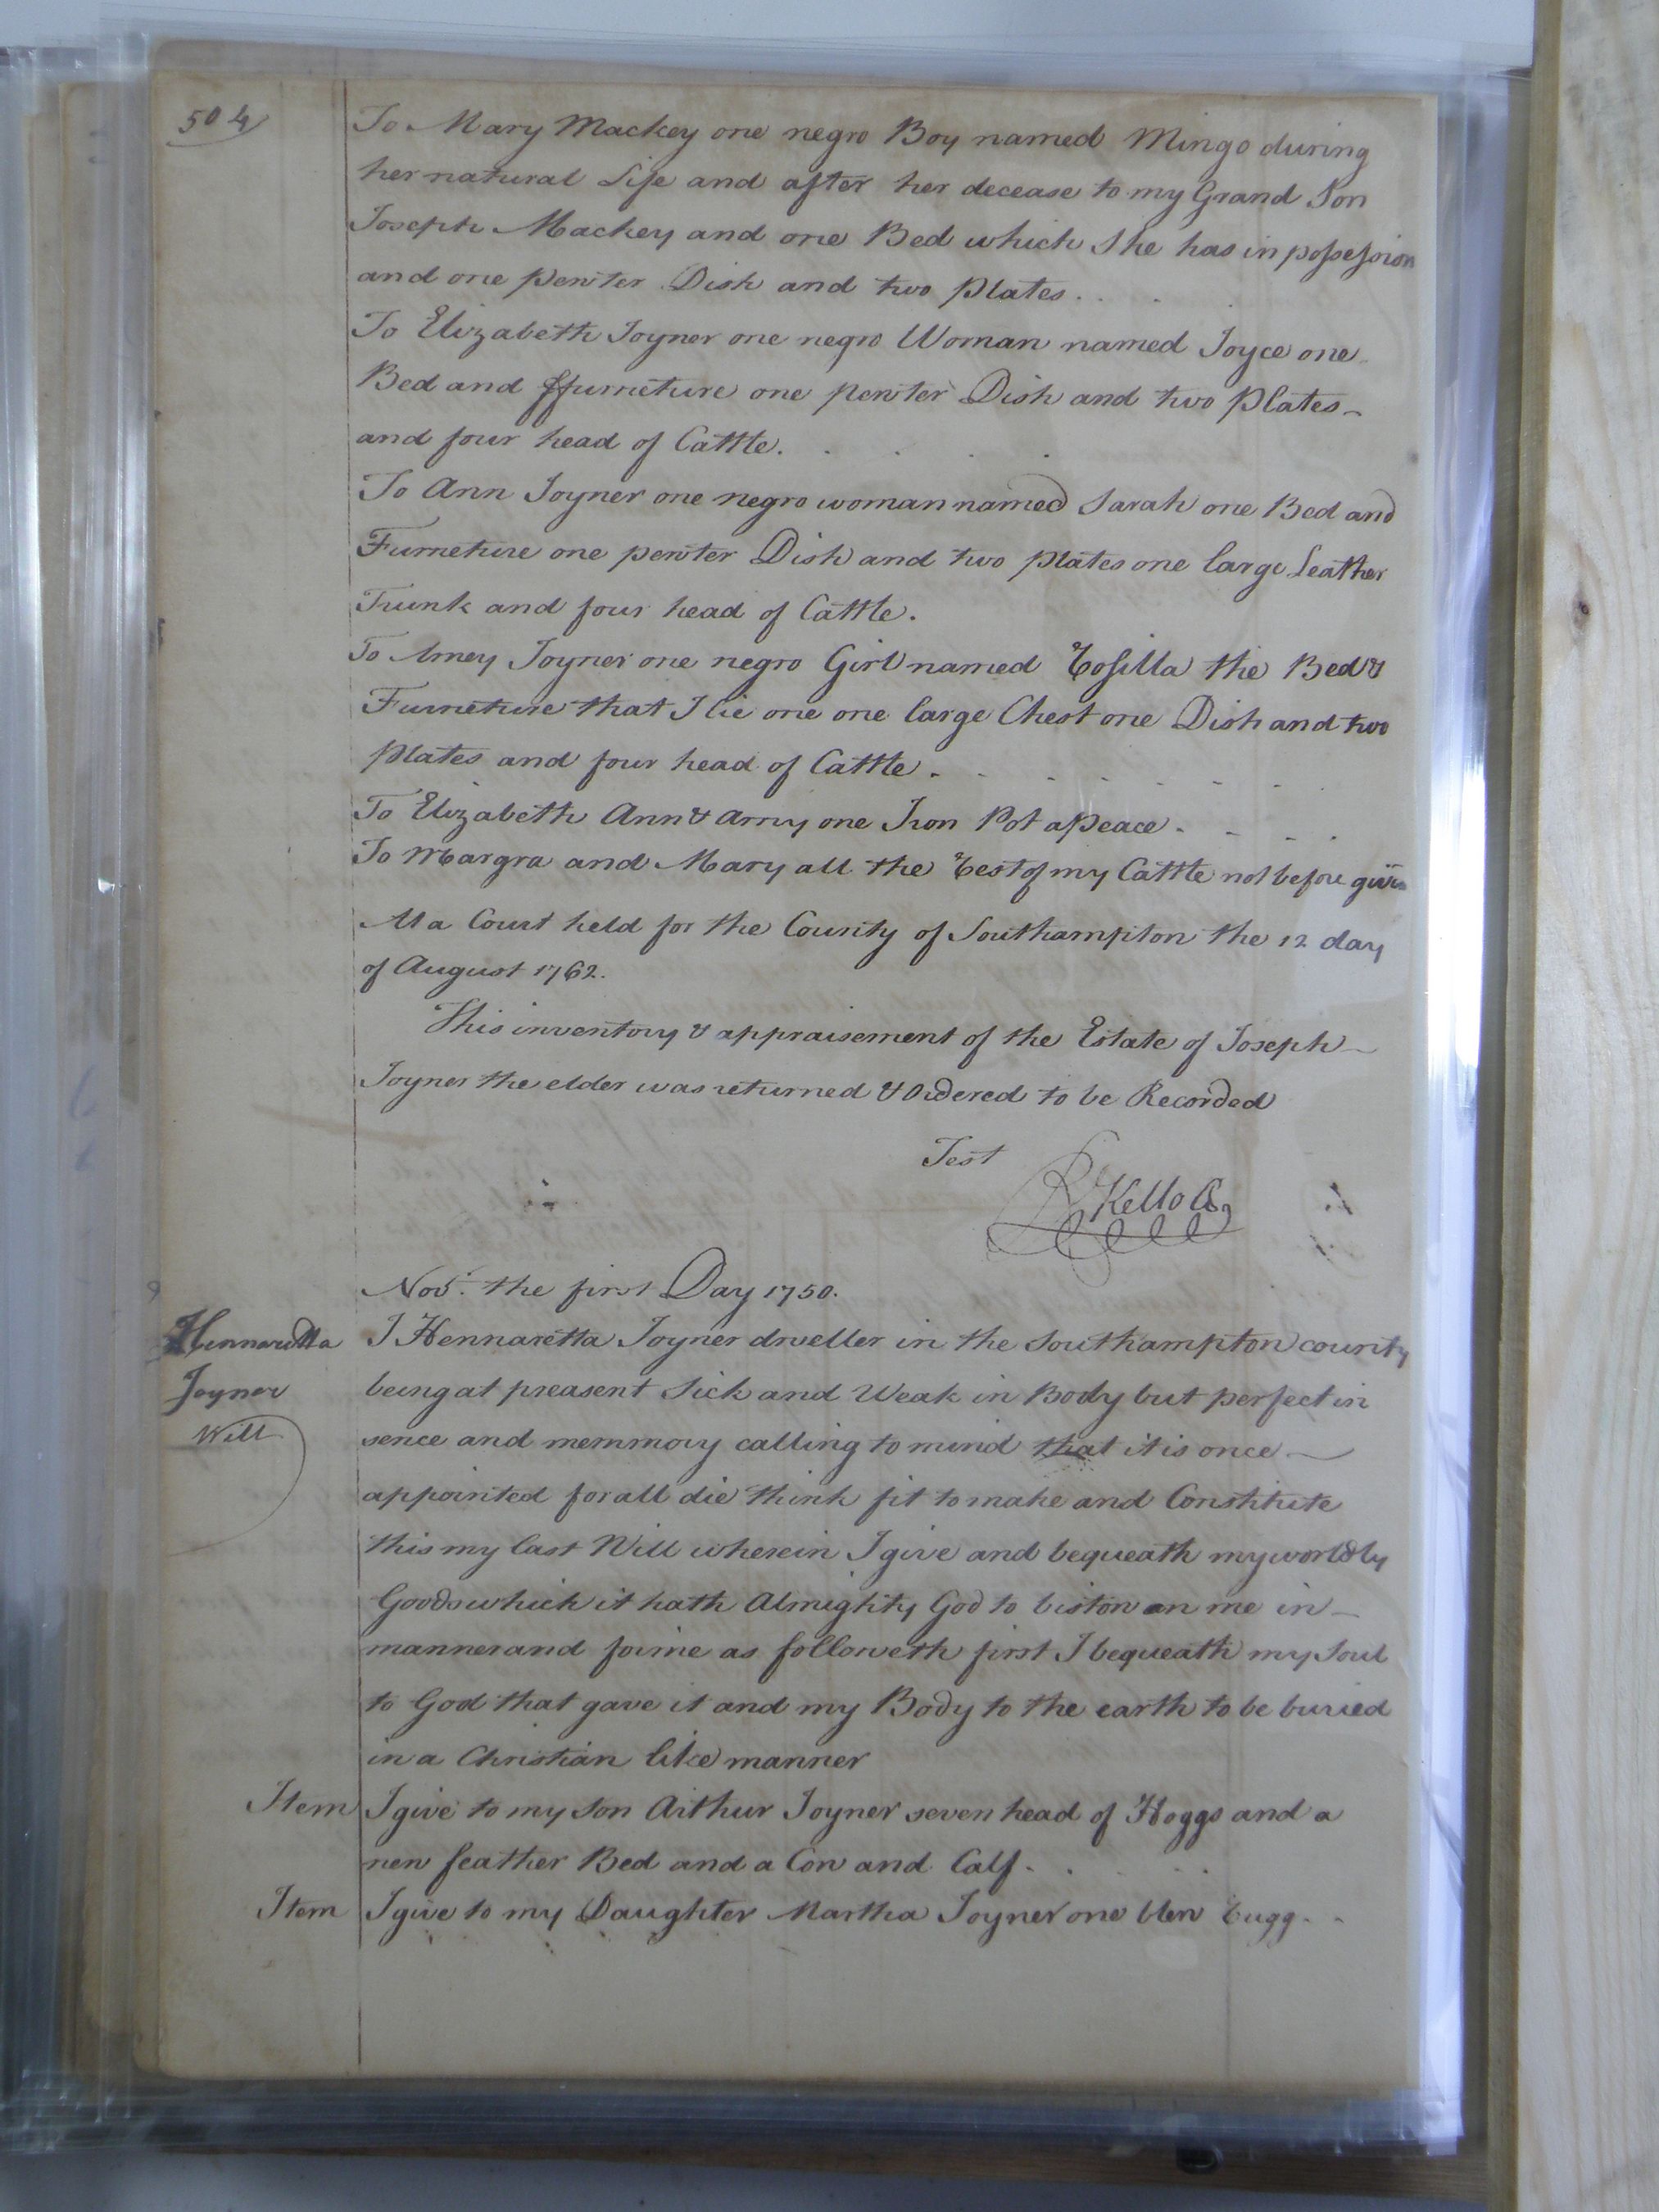 504
To Mary Mackey one negro Boy named Mingo during
her natural Life and after her decease to my Grand Son
Joseph Mackey and one Bed which She has in possession
and one pewter Dish and two plates . . .
To Elizabeth Joyner one negro Woman named Joyce one
Bed and ffurneture one pewter Dish and two plates
and four head of Cattle. . . . .
To Ann Joyner one negro woman named Sarah one Bed and
Furneture one pewter Dish and two plates one large Leather
Trunk and four head of Cattle.
To Amey Joyner one negro Girl named Rosilla the Bed &
Furneture that I lie one one large Chest one Dish and two
plates and four head of Cattle . . . . . . .
To Elizabeth Ann & Amy one Iron Pot apeace . . . .
To Margra and Mary all the Rest of my Cattle not before given
At a Court held for the County of Southampton the 12 day
of August 1762.
This inventory & appraisement of the Estate of Joseph
Joyner the elder was returned & Ordered to be Recorded
Test
R Kello Cl
Novr. the first Day 1750.
Hennaretta
Joyner
Will
I Hennaretta Joyner dweller in the Southampton county
being at preasent Sick and Weak in Body but perfect in
sence and memmory calling to mind that it is once
appointed for all die think fit to make and Constitute
this my last Will wherein I give and bequeath my worldly
Goods which it hath Almighty God to bistow on me in
manner and forme as followeth first I bequeath my Soul
to God that gave it and my Body to the earth to be buried
in a Christian like manner
Item I give to my Son Arthur Joyner seven head of Hoggs and a
new feather Bed and a Cow and Calf . . . .
Item I give to my Daughter Martha Joyner one blew Rugg . .